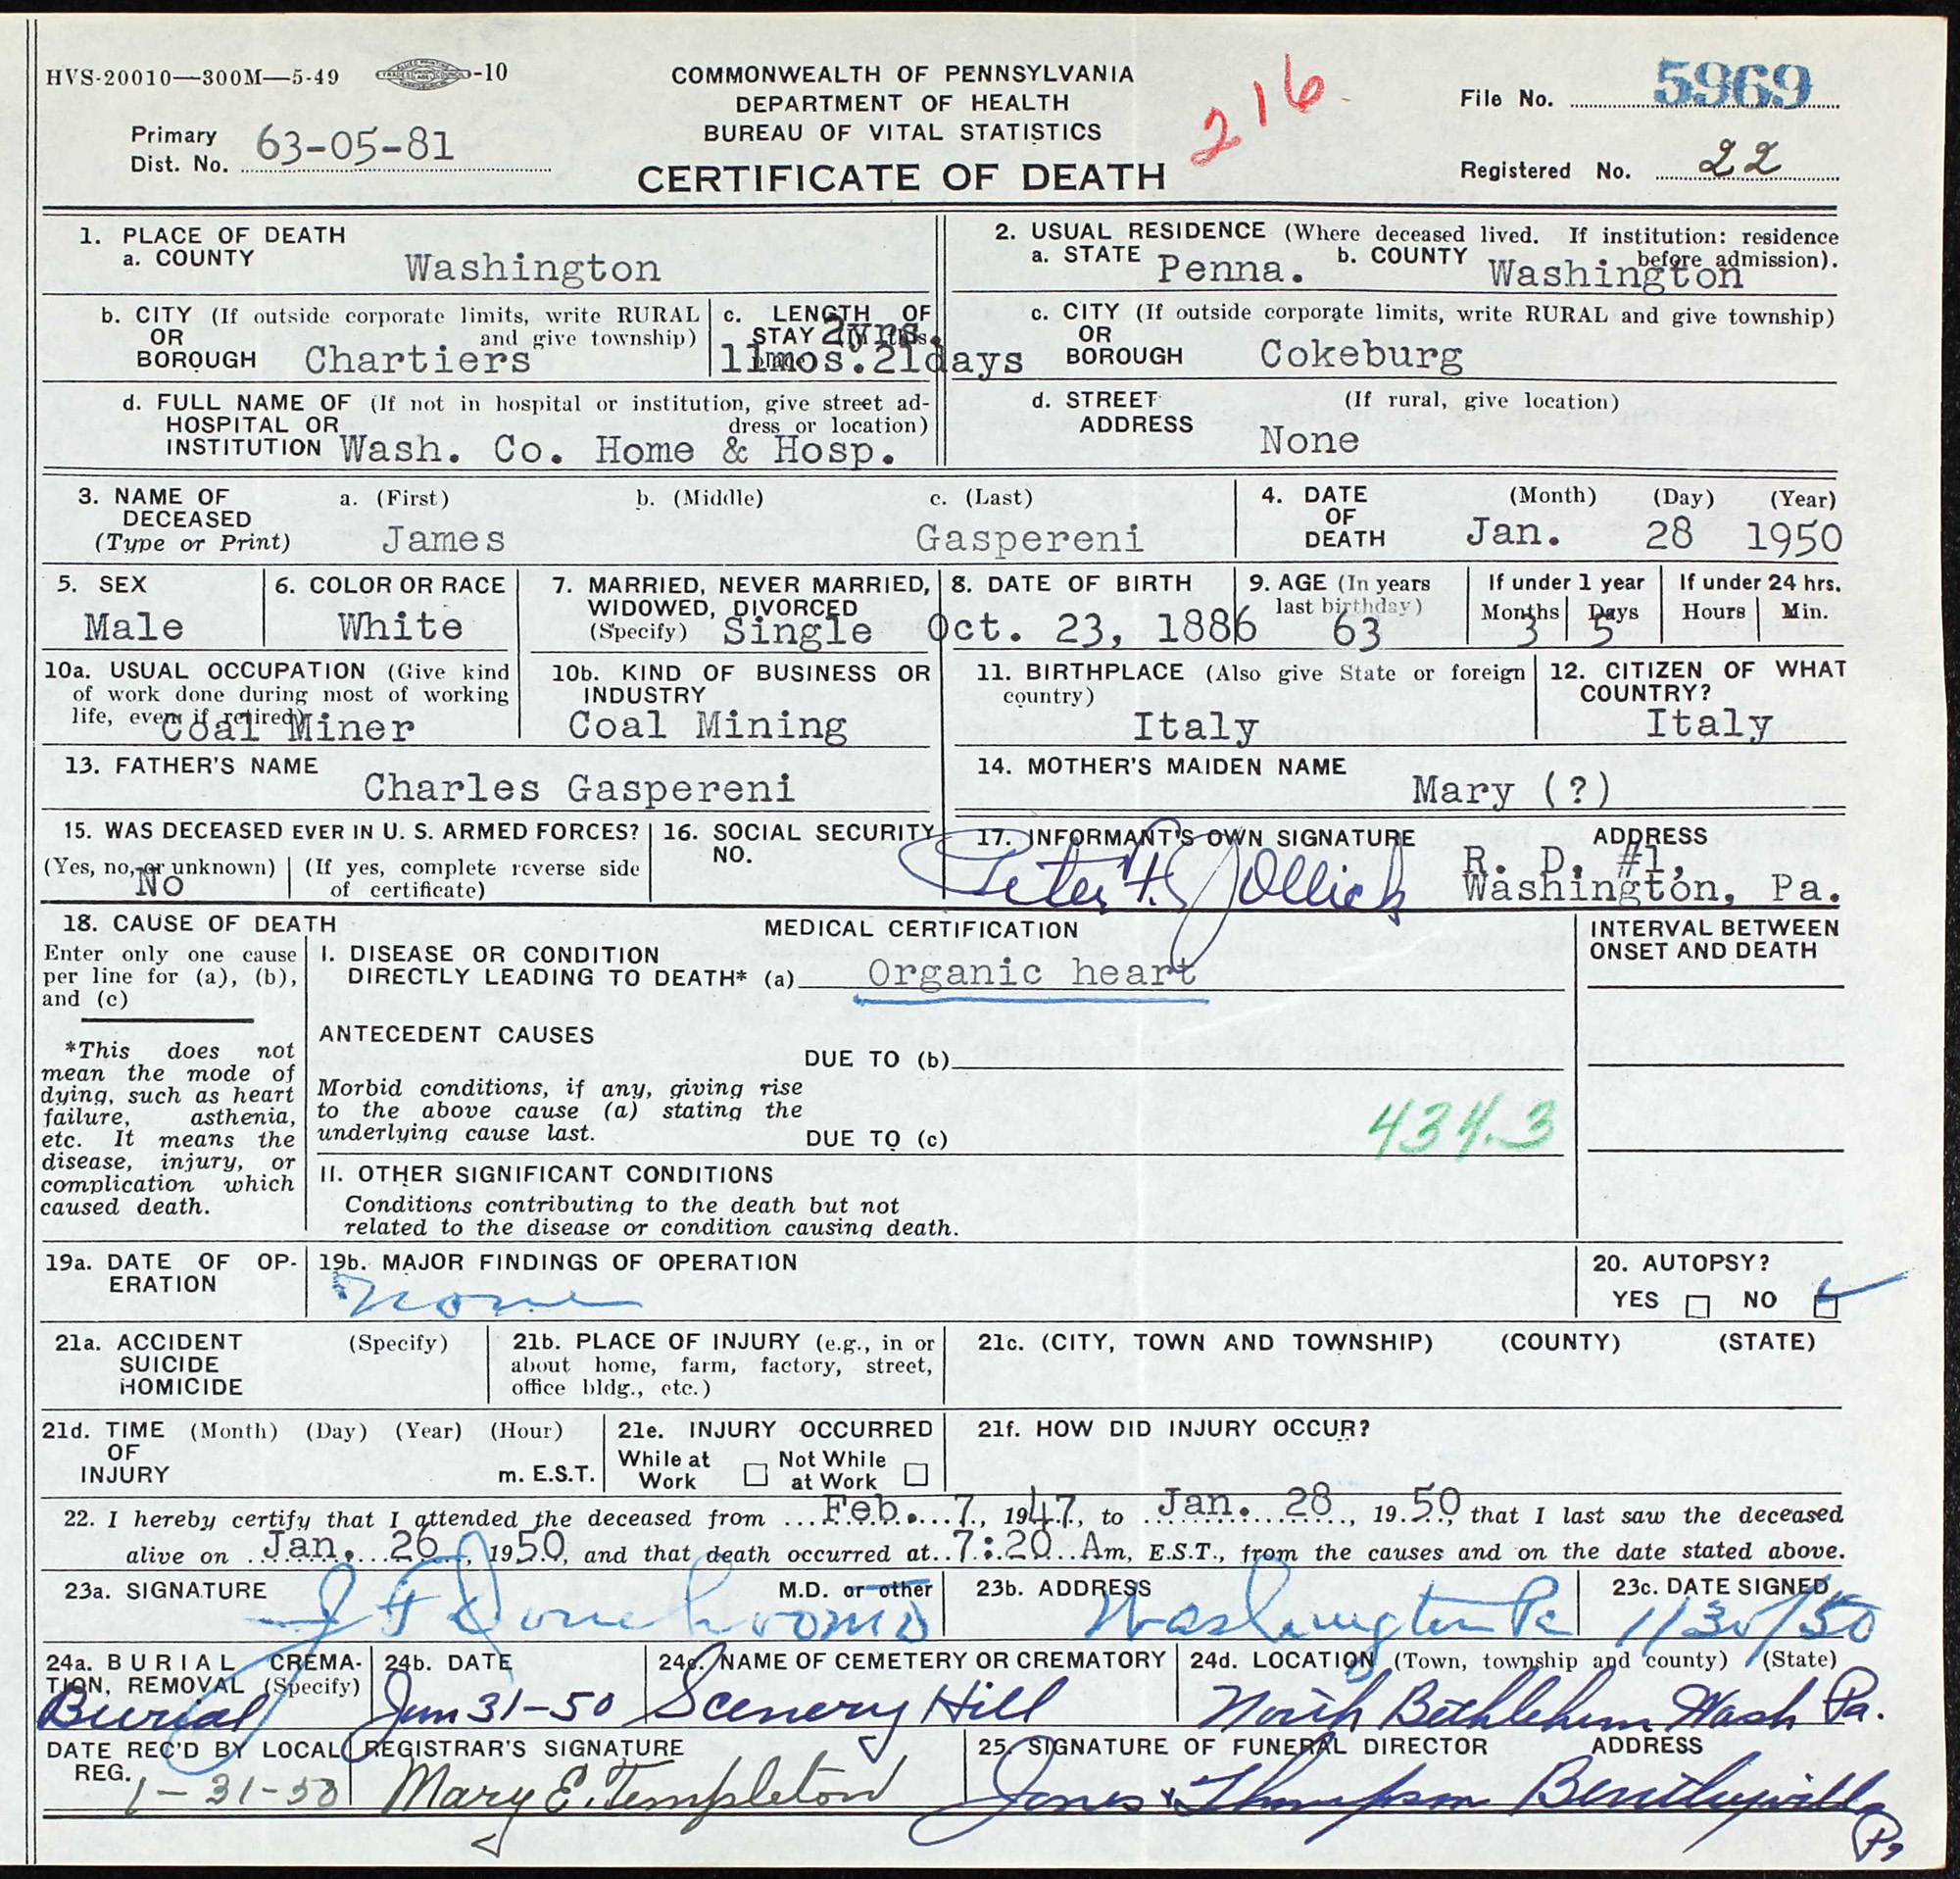 HVS-20010—300M—5-49 -10
COMMONWEALTH OF PENNSYLVANIA
DEPARTMENT OF HEALTH
BUREAU OF VITAL STATISTICS
CERTIFICATE OF DEATH
216
File No. 5969
Primary
Dist. No. 63-05-81
Registered No. 22
1. PLACE OF DEATH
a. COUNTY Washington
2. USUAL RESIDENCE (Where deceased lived. If institution: residence
before admission).
a. STATE Penna. b. COUNTY Washington
b. CITY (If outside corporate limits, write RURAL
OR and give township)
BOROUGH Chartiers
c. LENGTH OF
STAY 2yrs.
11mos.21days
c. CITY (If outside corporate limits, write RURAL and give township)
OR
BOROUGH Cokeburg
d. FULL NAME OF (If not in hospital or institution, give street ad-
HOSPITAL OR dress or location)
INSTITUTION Wash. Co. Home & Hosp.
d. STREET (If rural, give location)
ADDRESS None
3. NAME OF a. (First) b. (Middle) c. (Last)
DECEASED
(Type or Print) James Gaspereni
4. DATE (Month) (Day) (Year)
OF
DEATH Jan. 28 1950
5. SEX
Male
6. COLOR OR RACE
White
7. MARRIED, NEVER MARRIED,
WIDOWED, DIVORCED
(Specify) Single
8. DATE OF BIRTH
Oct. 23, 1886
9. AGE (In years
last birthday)
63
If under 1 year
Months Days
3 5
If under 24 hrs.
Hours Min.
10a. USUAL OCCUPATION (Give kind
of work done during most of working
life, even if retired)
Coal Miner
10b. KIND OF BUSINESS OR
INDUSTRY
Coal Mining
11. BIRTHPLACE (Also give State or foreign
country)
Italy
12. CITIZEN OF WHAT
COUNTRY?
Italy
13. FATHER'S NAME
Charles Gaspereni
14. MOTHER'S MAIDEN NAME
Mary (?)
15. WAS DECEASED EVER IN U. S. ARMED FORCES?
(Yes, no, or unknown) (If yes, complete reverse side
of certificate)
No
16. SOCIAL SECURITY
NO.
17. INFORMANT'S OWN SIGNATURE ADDRESS
Peter H. Jollick R. D. #1,
Washington, Pa.
18. CAUSE OF DEATH
Enter only one cause
per line for (a), (b),
and (c)
*This does not
mean the mode of
dying, such as heart
failure, asthenia,
etc. It means the
disease, injury, or
complication which
caused death.
MEDICAL CERTIFICATION
I. DISEASE OR CONDITION
DIRECTLY LEADING TO DEATH* (a) Organic heart
ANTECEDENT CAUSES
DUE TO (b)
Morbid conditions, if any, giving rise
to the above cause (a) stating the
underlying cause last.
DUE TO (c)
434.3
II. OTHER SIGNIFICANT CONDITIONS
Conditions contributing to the death but not
related to the disease or condition causing death.
INTERVAL BETWEEN
ONSET AND DEATH
19a. DATE OF OP-
ERATION
19b. MAJOR FINDINGS OF OPERATION
none
20. AUTOPSY?
YES NO
21a. ACCIDENT (Specify)
SUICIDE
HOMICIDE
21b. PLACE OF INJURY (e.g., in or
about home, farm, factory, street,
office bldg., etc.)
21c. (CITY, TOWN AND TOWNSHIP) (COUNTY) (STATE)
21d. TIME (Month) (Day) (Year) (Hour)
OF
INJURY m. E.S.T.
21e. INJURY OCCURRED
While at Not While
Work at Work
21f. HOW DID INJURY OCCUR?
22. I hereby certify that I attended the deceased from Feb. 7, 1947, to Jan. 28, 1950, that I last saw the deceased
alive on Jan. 26, 1950, and that death occurred at 7:20 Am, E.S.T., from the causes and on the date stated above.
23a. SIGNATURE M.D. or other
MD
23b. ADDRESS
Washington Pa
23c. DATE SIGNED
1/30/50
24a. BURIAL CREMA-
TION, REMOVAL (Specify)
Burial
24b. DATE
Jan 31-50
24c. NAME OF CEMETERY OR CREMATORY
Scenery Hill
24d. LOCATION (Town, township and county) (State)
North Bethlehem Wash Pa.
DATE REC'D BY LOCAL
REG.
1-31-50
REGISTRAR'S SIGNATURE
Mary E. Templeton
25. SIGNATURE OF FUNERAL DIRECTOR ADDRESS
Jones & Thompson Bentleyville
Pa